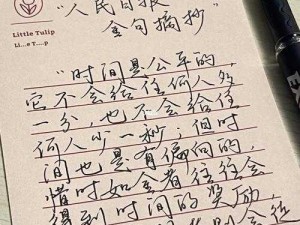 "人民日报"
金句摘抄
Little Tulip
Li...e T....p
"时间是公平的,
它不会给任何人多
一分,也不会给任
何人少一秒;但时
间也是有偏向的,
惜时如金者往往会
得到时间的奖励,